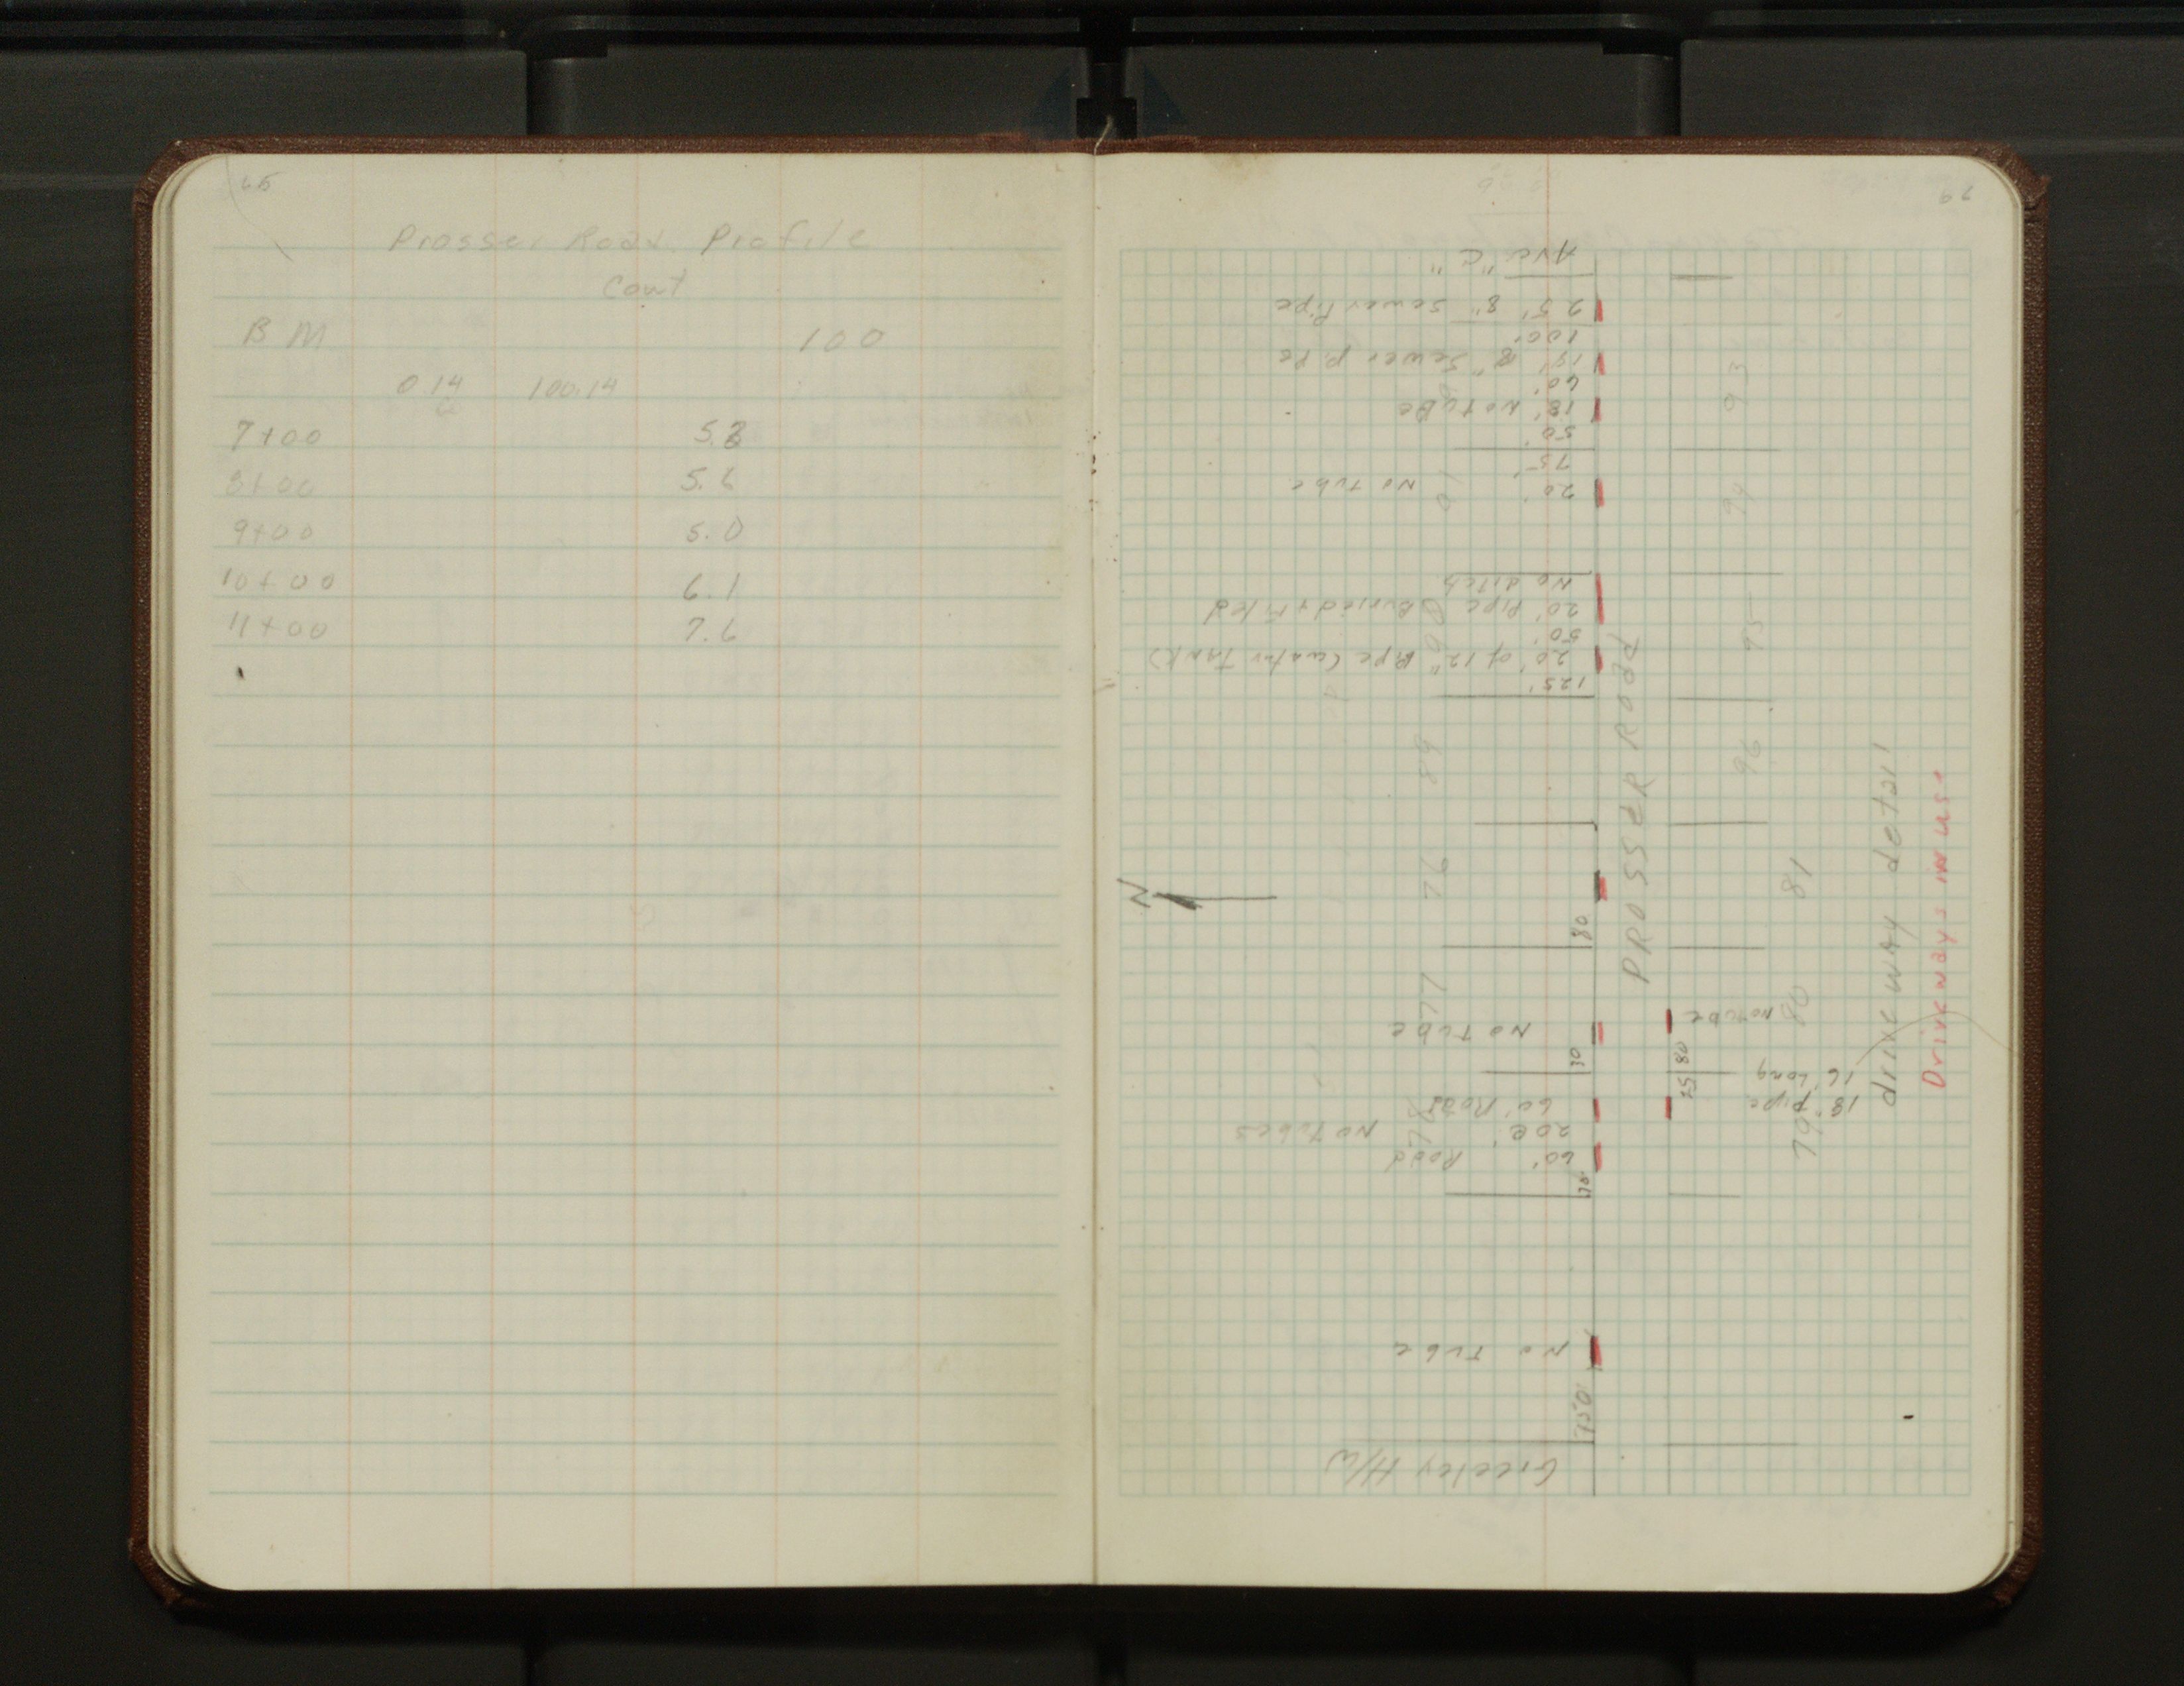 65
Prosser Road Profile
Cont
BM 100
0.14 100.14
7+00 5.8
8+00 5.6
9+00 5.0
10+00 6.1
11+00 7.6
Ave "C"
25' 8" Sewer Pipe
100'
19' 8" Sewer pipe
60'
18' No tube
50'
75'
20' No tube
No ditch
20' Pipe Buried & Filled
50'
20' of 12" Pipe (water Tank)
125'
89
76
80
77
No Tube
30
60' Road
20'
No tubes
78
60' Road
70'
No Tube
150'
Greeley H/W
N
PROSSER Road
93
94
95
96
81
80
No tube
80
25
16' Long
18" pipe
79
driveway detail
Driveways in use